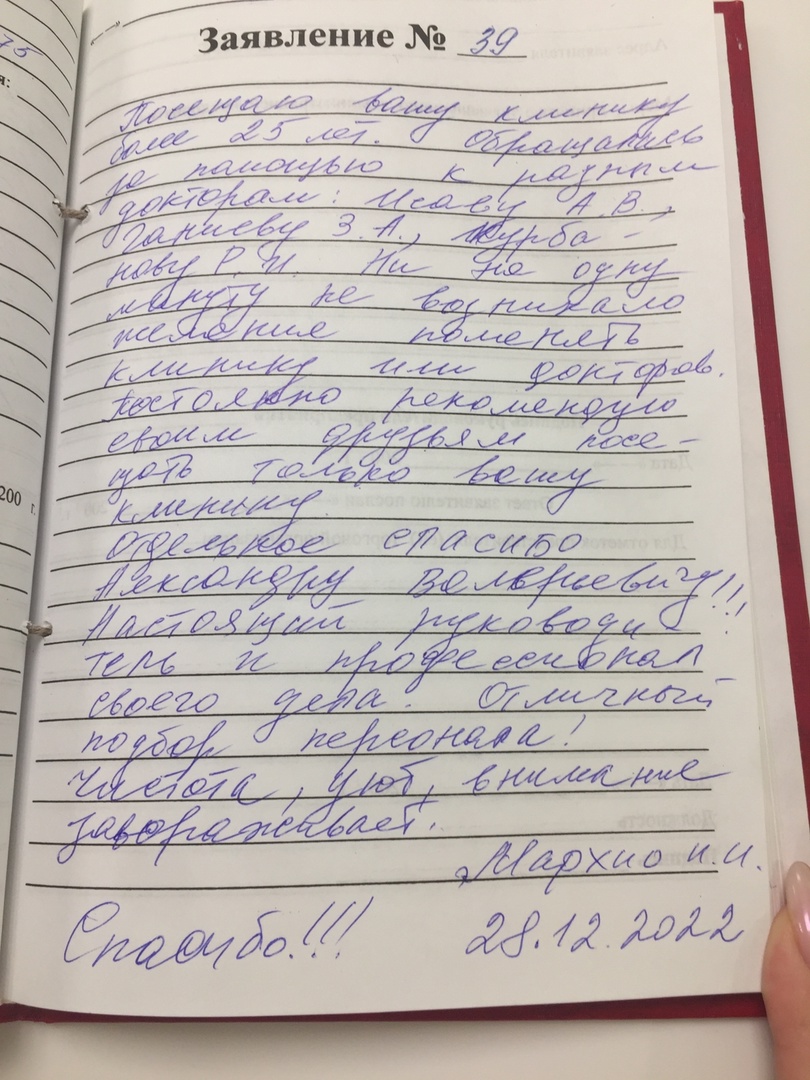 Заявление № 39
Посещаю вашу клинику
более 25 лет. Обращались
за помощью к разным
докторам: Исаеву А.В.,
Ганиеву З.А., Журба-
нову Р.И. Ни на одну
минуту не возникало
желание поменять
клинику или докторов.
Постоянно рекомендую
своим друзьям посе-
щать только вашу
клинику.
Отдельное спасибо
Александру Валерьевичу!!!
Настоящий руководи-
тель и профессионал
своего дела. Отличный
подбор персонала!
Чистота, уют, внимание
завораживает.
Мархио И.И.
Спасибо!!! 28.12.2022
75
я:
200 г.
Дата
Должность